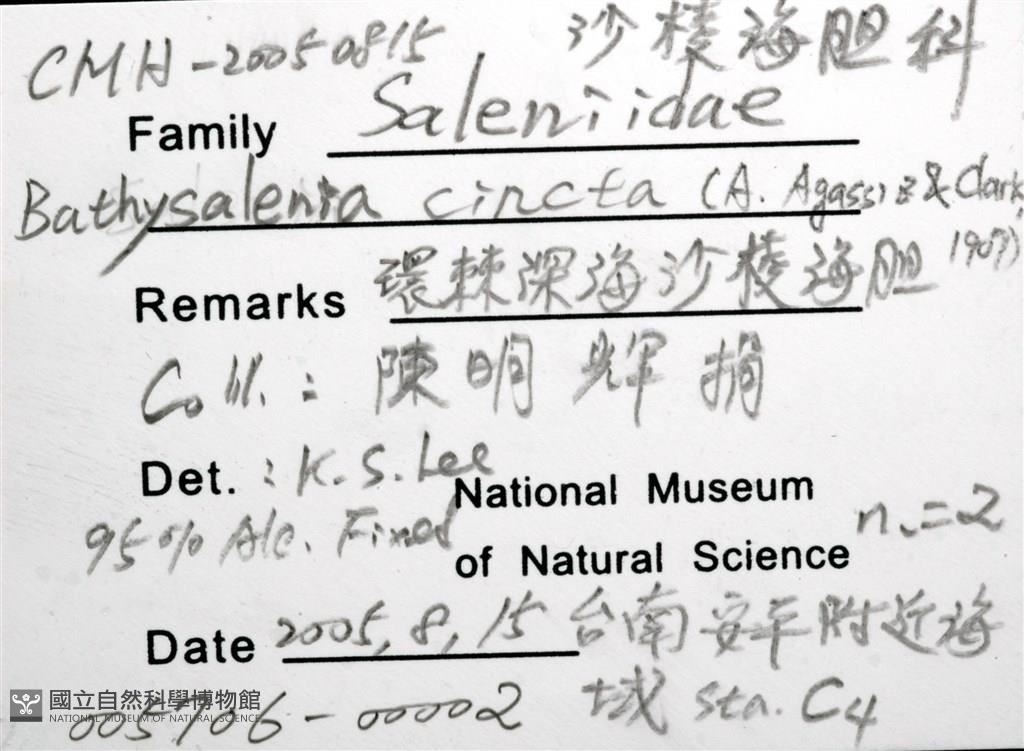 CMH-20050815 沙棱海胆科
Family Saleniidae
Bathysalenia cincta (A. Agassiz & Clark, 1907)
Remarks 環棘深海沙棱海胆
Coll.: 陳明輝捐
Det.: K. S. Lee
National Museum
95% Alc. Fixed n.=2
of Natural Science
Date 2005, 8, 15 台南安平附近海
域 sta. C4
國立自然科學博物館
NATIONAL MUSEUM OF NATURAL SCIENCE
005706-00002